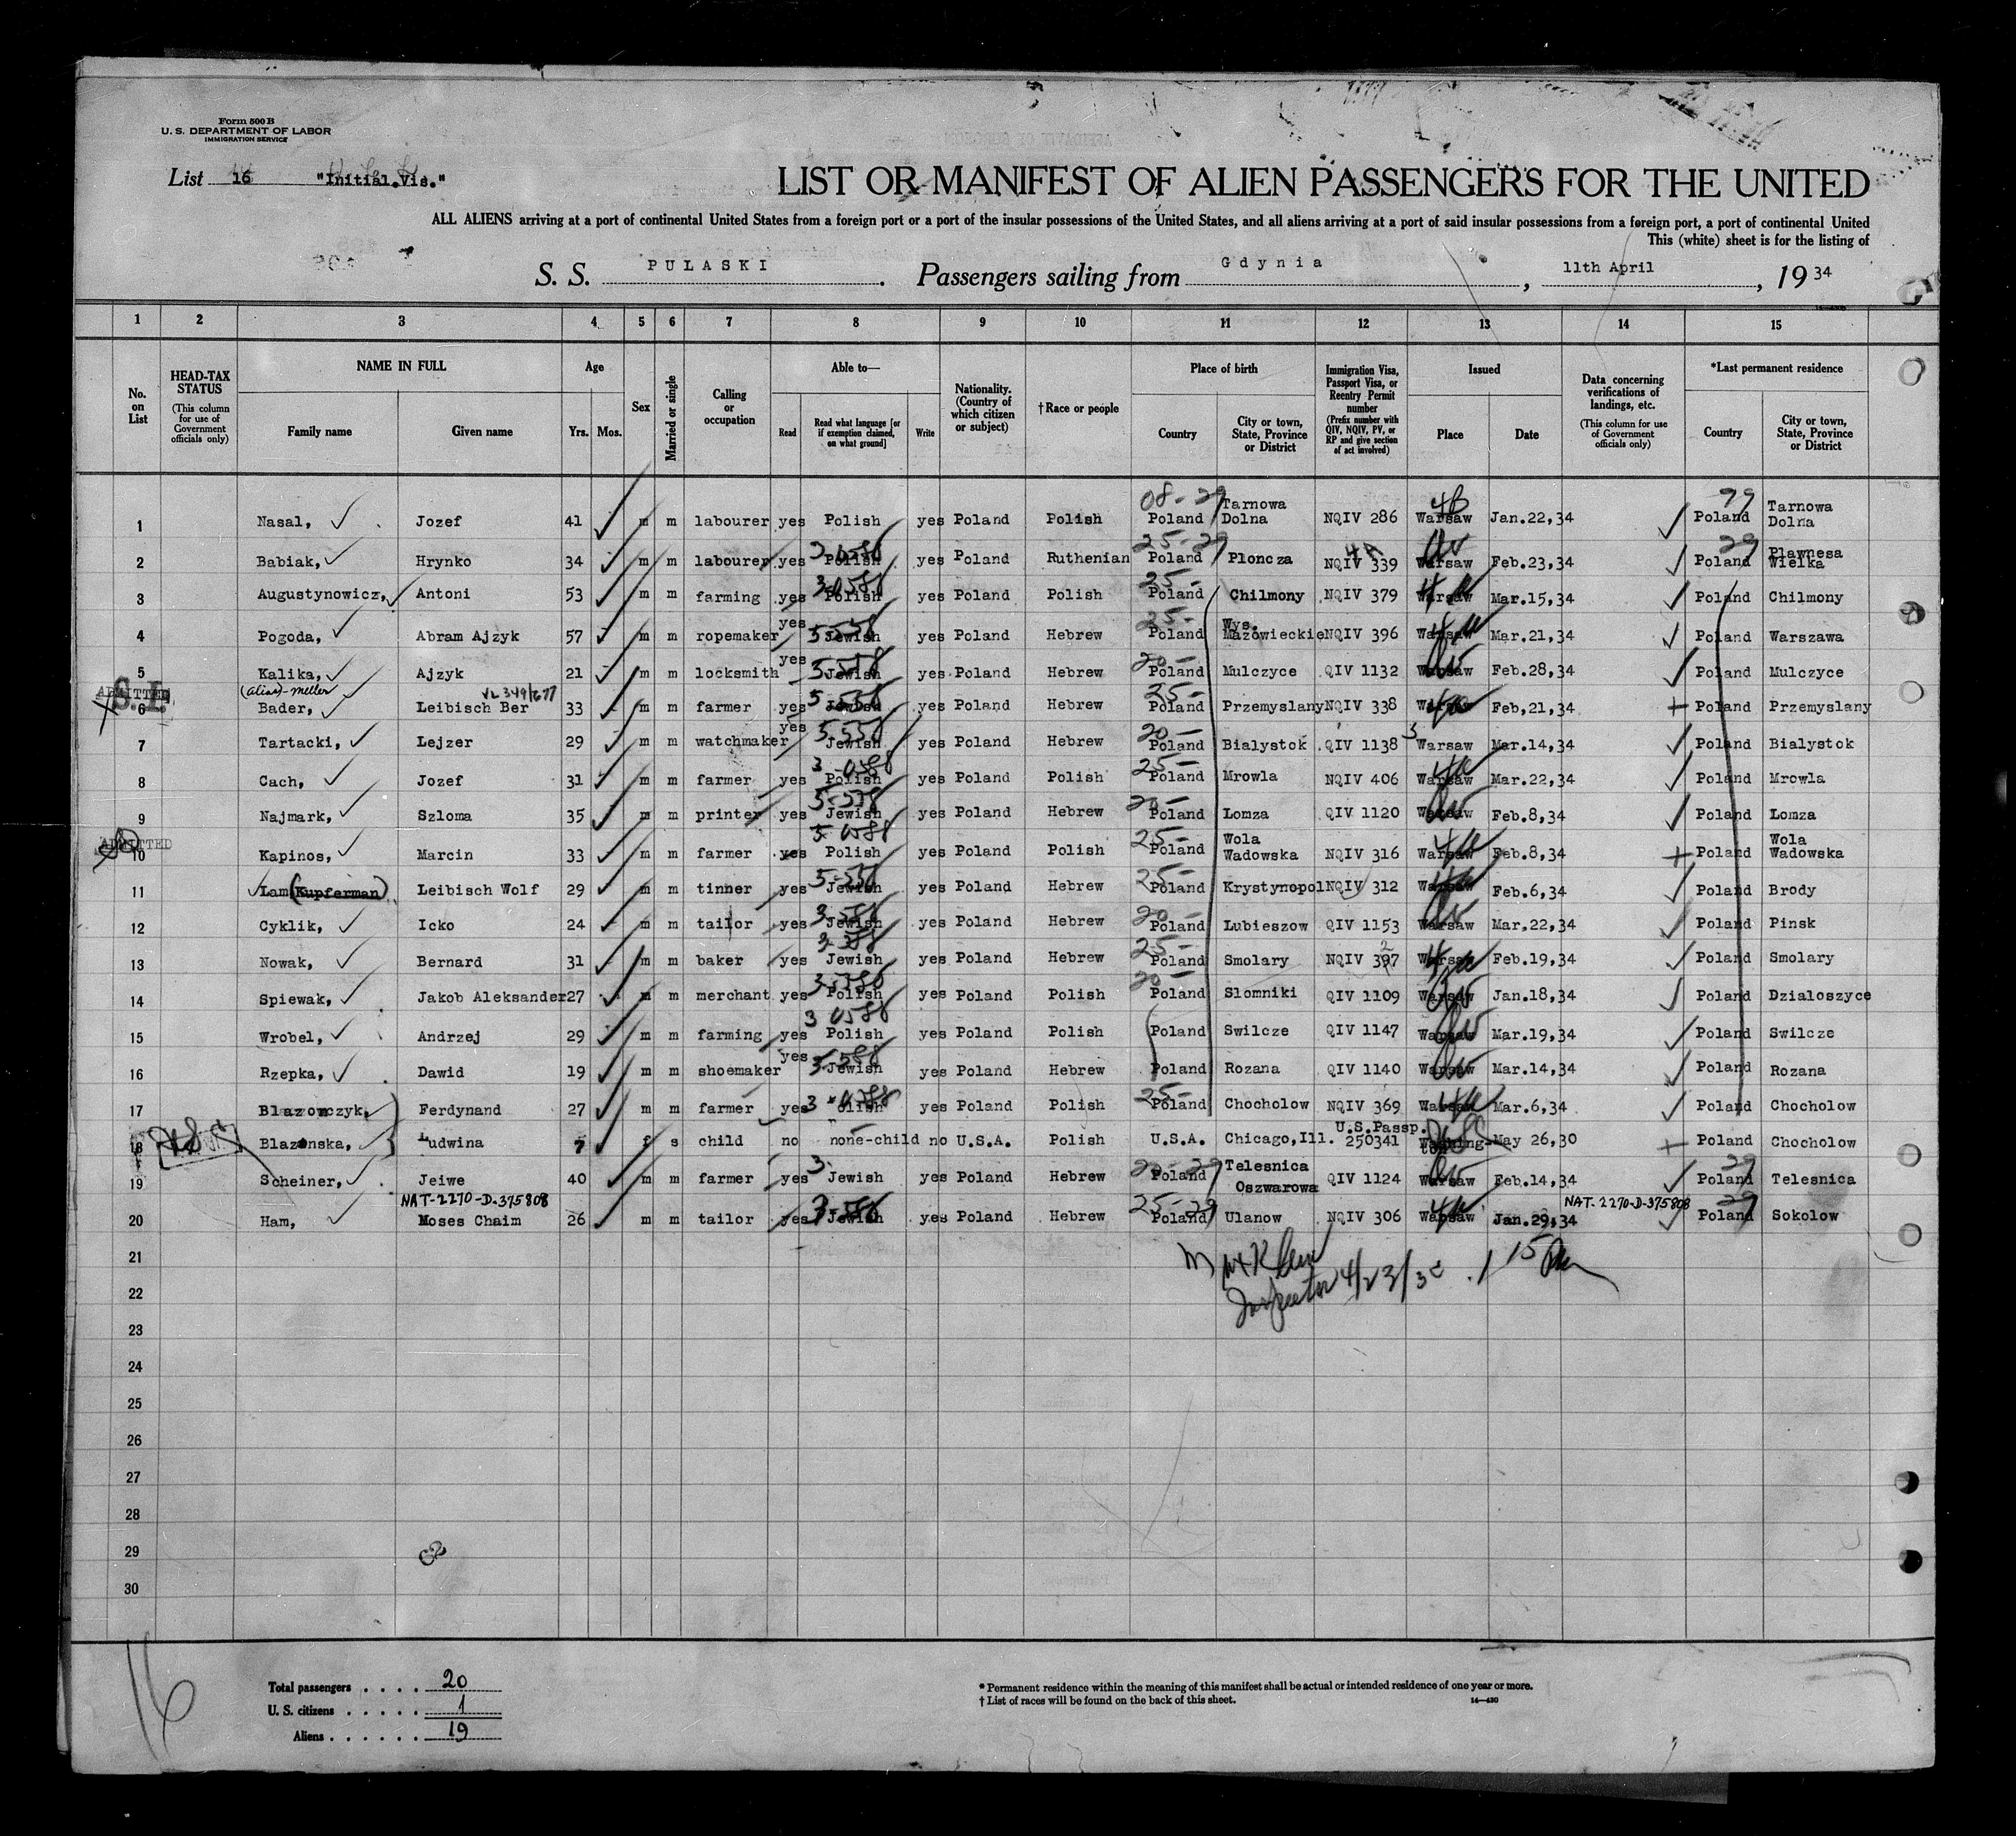 Form 500 B
U. S. DEPARTMENT OF LABOR
IMMIGRATION SERVICE
List 16 "Initial.Vis."
LIST OR MANIFEST OF ALIEN PASSENGERS FOR THE UNITED
ALL ALIENS arriving at a port of continental United States from a foreign port or a port of the insular possessions of the United States, and all aliens arriving at a port of said insular possessions from a foreign port, a port of continental United
This (white) sheet is for the listing of
S. S. PULASKI. Passengers sailing from Gdynia, 11th April, 19 34
1 2 3 4 5 6 7 8 9 10 11 12 13 14 15
No. on List
HEAD-TAX STATUS (This column for use of Government officials only)
NAME IN FULL Family name Given name
Age Yrs. Mos.
Sex
Married or single
Calling or occupation
Able to— Read Read what language [or if exemption claimed, on what ground] Write
Nationality. (Country of which citizen or subject)
†Race or people
Place of birth Country City or town, State, Province or District
Immigration Visa, Passport Visa, or Reentry Permit number (Prefix number with QIV, NQIV, PV, or RP and give section of act involved)
Issued Place Date
Data concerning verifications of landings, etc. (This column for use of Government officials only)
*Last permanent residence Country City or town, State, Province or District
1 Nasal, Jozef 41 m m labourer yes Polish yes Poland Polish 08-29 Poland Tarnowa Dolna NQIV 286 4B Warsaw Jan.22,34 29 Poland Tarnowa Dolna
2 Babiak, Hrynko 34 m m labourer yes Polish yes Poland Ruthenian 25-29 Poland Ploncza NQIV 339 Warsaw Feb.23,34 29 Poland Plawnesa Wielka
3 Augustynowicz, Antoni 53 m m farming yes Polish yes Poland Polish 25- Poland Chilmony NQIV 379 Warsaw Mar.15,34 Poland Chilmony
4 Pogoda, Abram Ajzyk 57 m m ropemaker yes Jewish yes Poland Hebrew 25- Poland Wys. Mazowieckie NQIV 396 Warsaw Mar.21,34 Poland Warszawa
5 Kalika, Ajzyk 21 m m locksmith yes Jewish yes Poland Hebrew 20- Poland Mulczyce QIV 1132 Warsaw Feb.28,34 Poland Mulczyce
ADMITTED S.I. (alias)-Meller
6 Bader, Leibisch Ber 33 m m farmer yes Jewish yes Poland Hebrew 25- Poland Przemyslany NQIV 338 Warsaw Feb,21,34 Poland Przemyslany
7 Tartacki, Lejzer 29 m m watchmaker yes Jewish yes Poland Hebrew 20- Poland Bialystok QIV 1138 Warsaw Mar.14,34 Poland Bialystok
8 Cach, Jozef 31 m m farmer yes Polish yes Poland Polish 25- Poland Mrowla NQIV 406 Warsaw Mar.22,34 Poland Mrowla
9 Najmark, Szloma 35 m m printer yes Jewish yes Poland Hebrew 20- Poland Lomza QIV 1120 Warsaw Feb.8,34 Poland Lomza
ADMITTED
10 Kapinos, Marcin 33 m m farmer yes Polish yes Poland Polish 25- Poland Wola Wadowska NQIV 316 Warsaw Feb.8,34 Poland Wola Wadowska
11 Lam (Kupferman) Leibisch Wolf 29 m m tinner yes Jewish yes Poland Hebrew 25- Poland Krystynopol NQIV 312 Warsaw Feb.6,34 Poland Brody
12 Cyklik, Icko 24 m m tailor yes Jewish yes Poland Hebrew 20- Poland Lubieszow QIV 1153 Warsaw Mar.22,34 Poland Pinsk
13 Nowak, Bernard 31 m m baker yes Jewish yes Poland Hebrew 25- Poland Smolary NQIV 397 Warsaw Feb.19,34 Poland Smolary
14 Spiewak, Jakob Aleksander 27 m m merchant yes Polish yes Poland Polish 20 Poland Slomniki QIV 1109 Warsaw Jan.18,34 Poland Dzialoszyce
15 Wrobel, Andrzej 29 m m farming yes Polish yes Poland Polish Poland Swilcze QIV 1147 Warsaw Mar.19,34 Poland Swilcze
16 Rzepka, Dawid 19 m m shoemaker yes Jewish yes Poland Hebrew Poland Rozana QIV 1140 Warsaw Mar.14,34 Poland Rozana
17 Blazowczyk, Ferdynand 27 m m farmer yes Polish yes Poland Polish 25- Poland Chocholow NQIV 369 Warsaw Mar.6,34 Poland Chocholow
18 Blazonska, Ludwina 7 f s child no none-child no U.S.A. Polish U.S.A. Chicago,Ill. U.S.Passp. 250341 Washing-ton May 26,30 Poland Chocholow
19 Scheiner, Jeiwe 40 m m farmer yes Jewish yes Poland Hebrew 20-29 Poland Telesnica Oszwarowa QIV 1124 Warsaw Feb.14,34 29 Poland Telesnica
NAT-2270-D-375808 NAT-2270-D-375808
20 Ham, Moses Chaim 26 m m tailor yes Jewish yes Poland Hebrew 25-29 Poland Ulanow NQIV 306 Warsaw Jan.29,34 29 Poland Sokolow
21
22 Inspector
23
24
25
26
27
28
29
30
16
Total passengers . . . . 20
U. S. citizens . . . . . 1
Aliens . . . . . . 19
* Permanent residence within the meaning of this manifest shall be actual or intended residence of one year or more.
† List of races will be found on the back of this sheet. 14—430